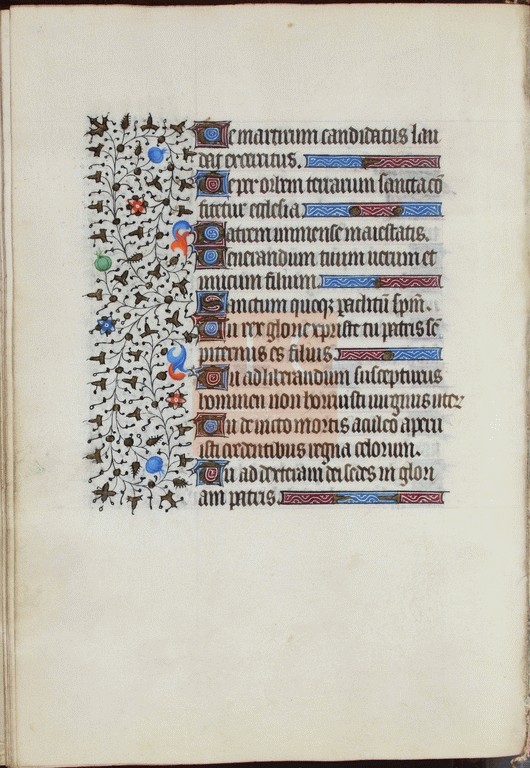 Te martirum candidatus lau
dat exercitus.
Te per orbem terrarum sancta cō
fitetur ecclesia
Patrem immense maiestatis.
Venerandum tuum uerum et
unicum filium.
Sanctum quoqz paclitū spm̄.
Tu rex glorie xp̄riste tu patris sē
piternus es filius.
Tu ad liberandum suscepturus
hominem non horruisti uirginis uter
Tu deuicto mortis aculeo aperu
isti credentibus regna celorum.
Tu ad dexteram dei sedes in glori
am patris.